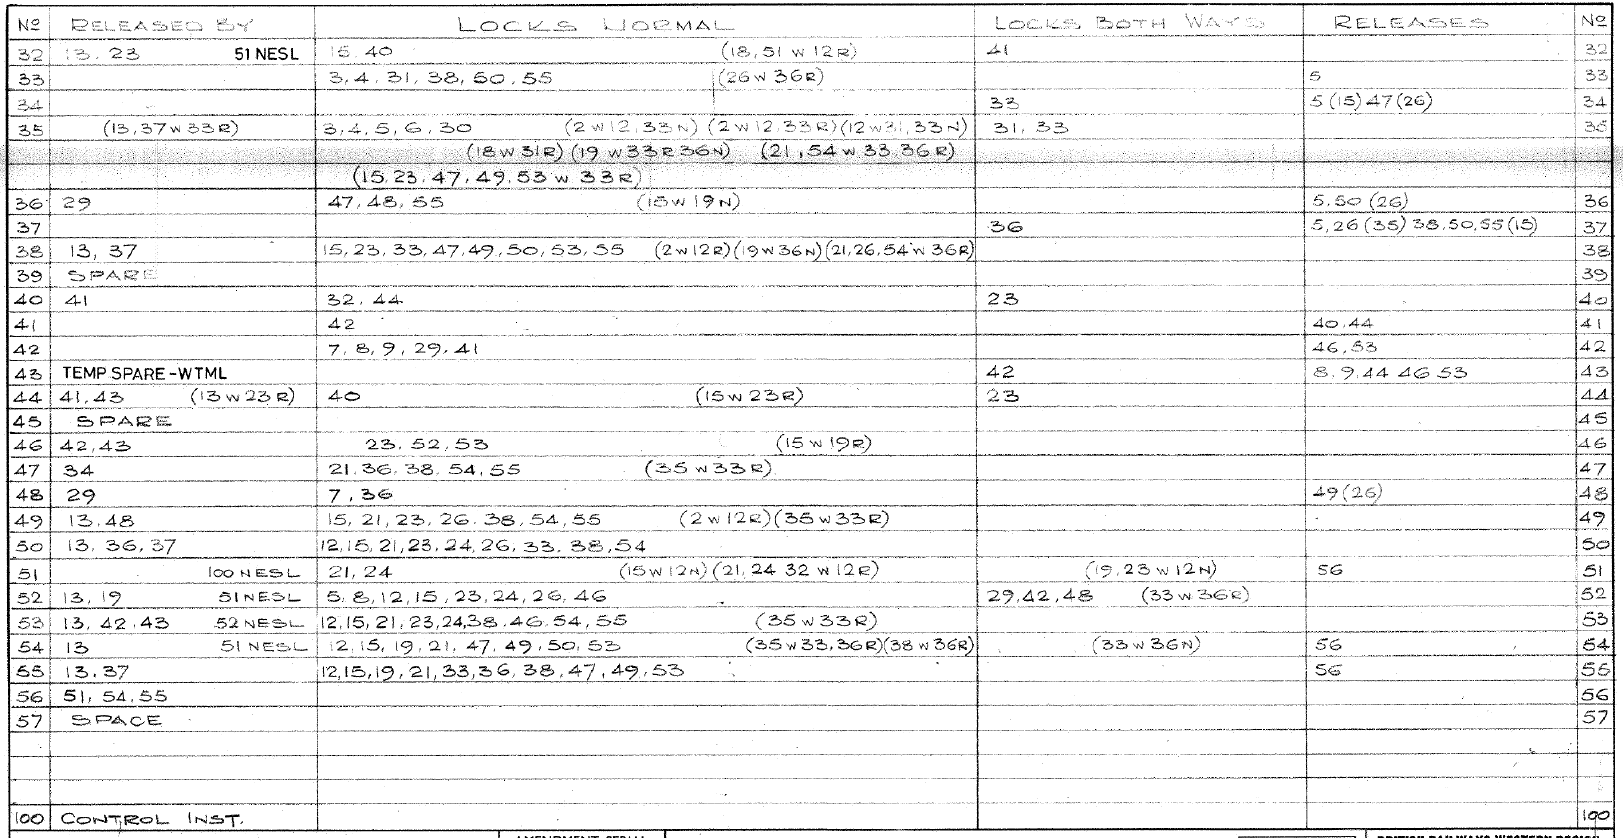 No RELEASED BY LOCKS NORMAL LOCKS BOTH WAYS RELEASES No
32 13, 23 51 NESL 15. 40 (18, 51 w 12R) 41 32
33 3, 4, 31, 38, 50, 55 (26 w 36R) 5 33
34 33 5 (15) 47 (26) 34
35 (13, 37 w 33R) 3, 4, 5, 6, 30 (2 w 12, 33N) (2 w 12, 33R) (12 w 31, 33N) 31, 33 35
(18 w 31R) (19 w 33R 36N) (21, 54 w 33, 36R)
(15, 23, 47, 49, 53 w 33R)
36 29 47, 48, 55 (15 w 19N) 5. 50 (26) 36
37 36 5, 26 (35) 38, 50, 55 (15) 37
38 13, 37 15, 23, 33, 47, 49, 50, 53, 55 (2 w 12R) (19 w 36N) (21, 26, 54 w 36R) 38
39 SPARE 39
40 41 32, 44 23 40
41 42 40, 44 41
42 7, 8, 9, 29, 41 46, 53 42
43 TEMP SPARE - WTML 42 8, 9, 44 46 53 43
44 41, 43 (13 w 23R) 40 (15 w 23R) 23 44
45 SPARE 45
46 42, 43 23, 52, 53 (15 w 19R) 46
47 34 21, 36, 38, 54, 55 (35 w 33R) 47
48 29 7, 36 49 (26) 48
49 13, 48 15, 21, 23, 26, 38, 54, 55 (2 w 12R) (35 w 33R) 49
50 13, 36, 37 12, 15, 21, 23, 24, 26, 33, 38, 54 50
51 100 NESL 21, 24 (15 w 12N) (21, 24 32 w 12R) (19, 23 w 12N) 56 51
52 13, 19 51 NESL 5, 8, 12, 15, 23, 24, 26, 46 29, 42, 48 (33 w 36R) 52
53 13, 42, 43 52 NESL 12, 15, 21, 23, 24, 38, 46, 54, 55 (35 w 33R) 53
54 13 51 NESL 12, 15, 19, 21, 47, 49, 50, 53 (35 w 33, 36R) (38 w 36R) (33 w 36N) 56 54
55 13, 37 12, 15, 19, 21, 33, 36, 38, 47, 49, 53 56 55
56 51, 54, 55 56
57 SPACE 57
100 CONTROL INST. 100